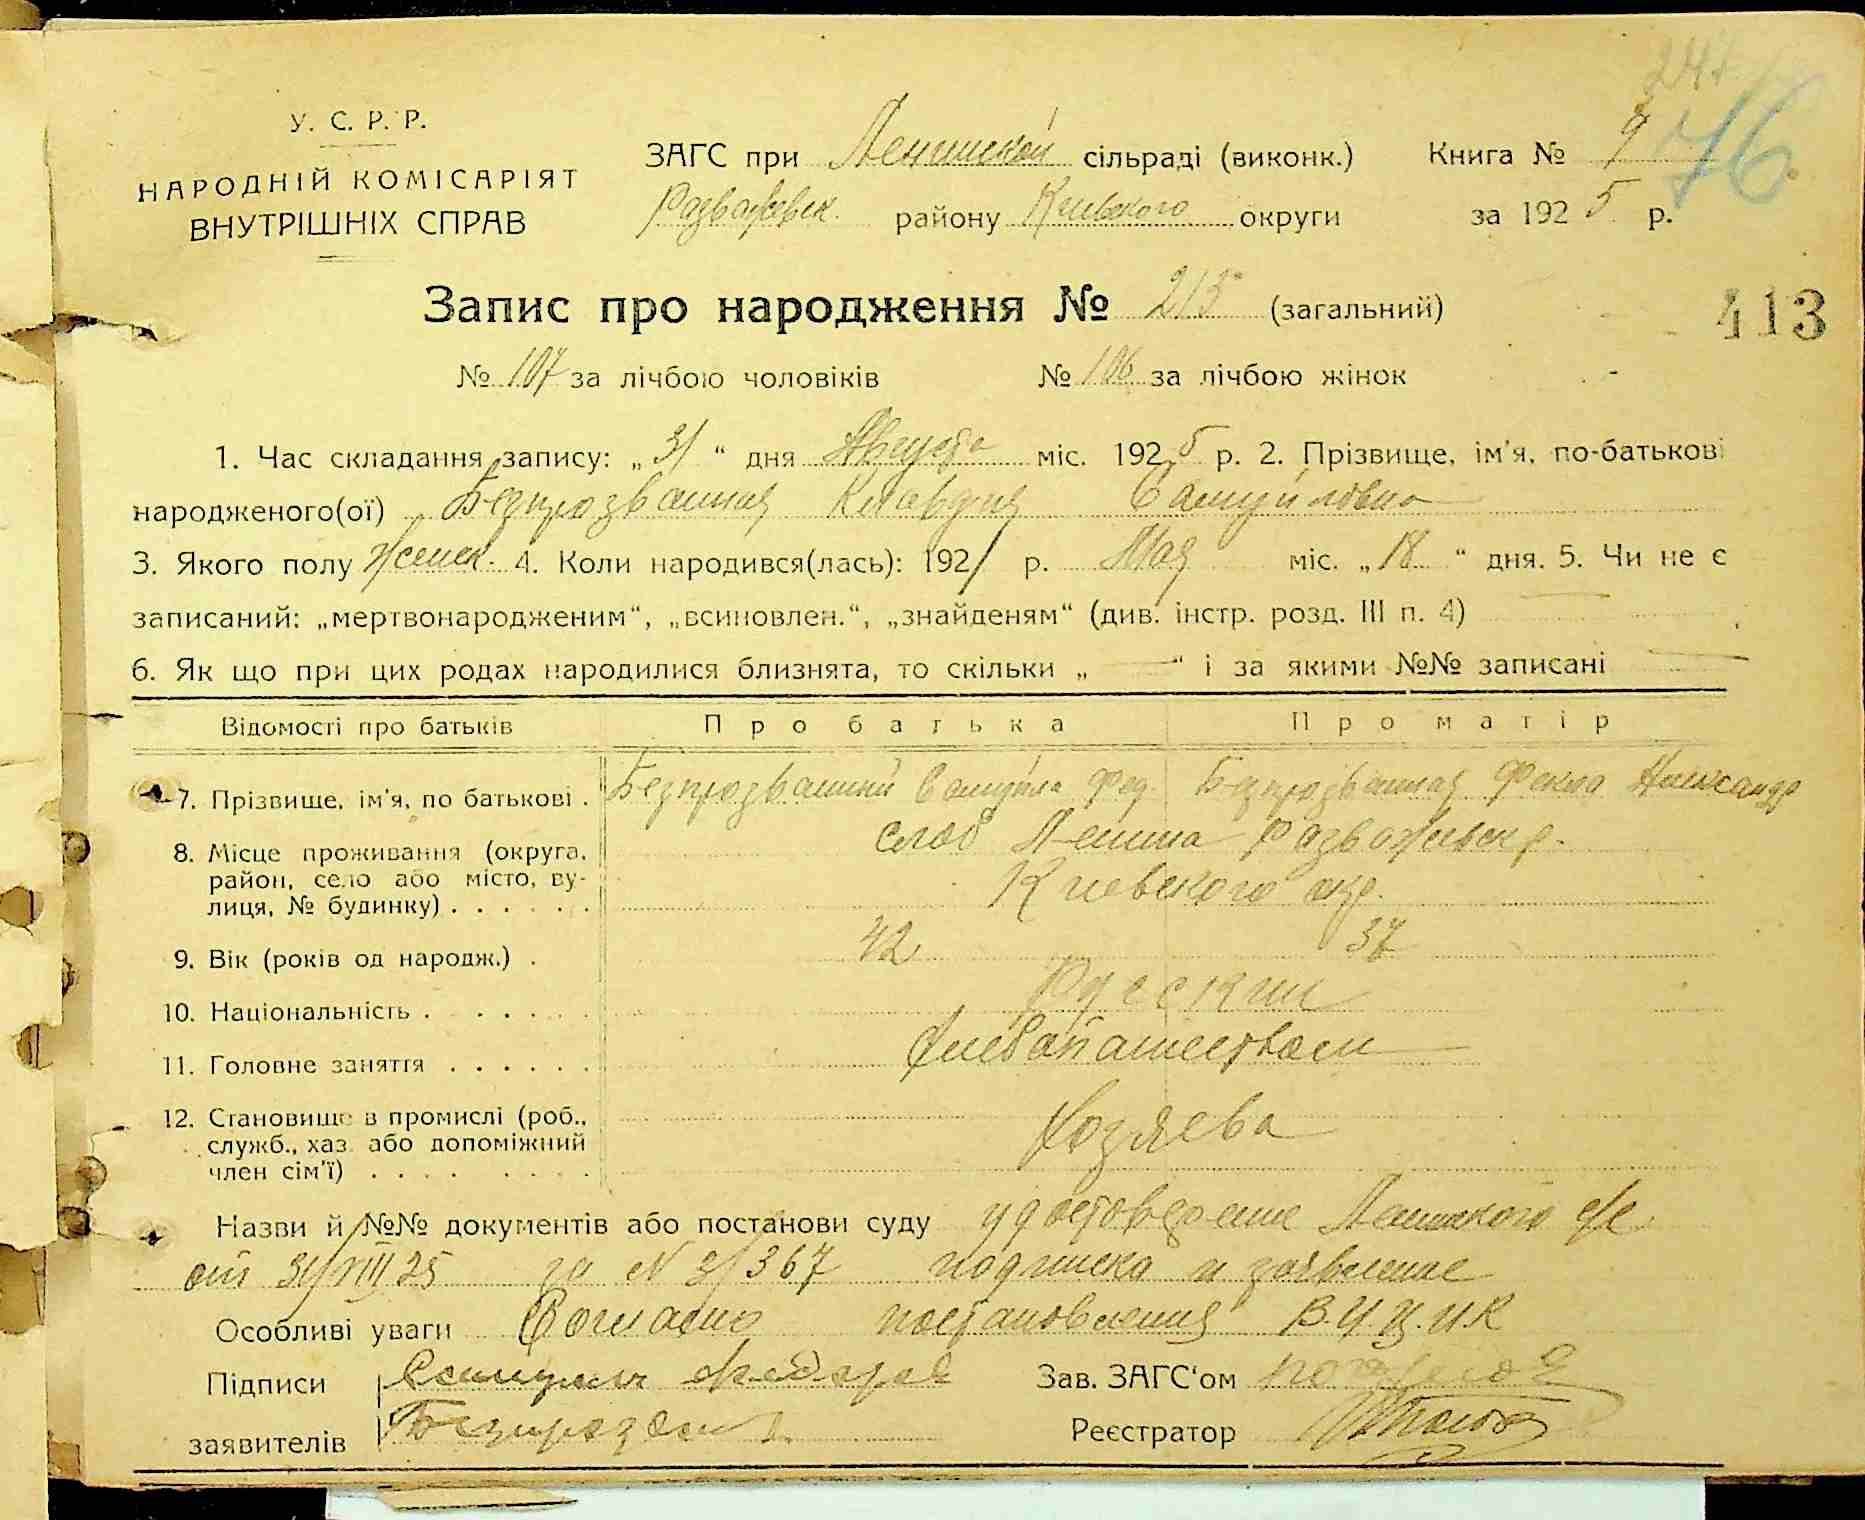 247
76.
У. С. Р. Р.
НАРОДНІЙ КОМІСАРІЯТ
ВНУТРІШНІХ СПРАВ
ЗАГС при Ленинской сільраді (виконк.) Книга № 9
Розважевск. району Киевского округи за 1925 р.
Запис про народження № 213 (загальний)
413
№ 107 за лічбою чоловіків № 106 за лічбою жінок
1. Час складання запису: „31“ дня Августа міс. 1925 р. 2. Прізвище, ім'я, по-батькові
народженого(ої) Безпрозванная Клавдия Самуйловна
3. Якого полу женск. 4. Коли народився(лась): 1921 р. Мая міс. „18“ дня. 5. Чи не є
записаний: „мертвонародженим“, „всиновлен.“, „знайденям“ (див. інстр. розд. III п. 4)
6. Як що при цих родах народилися близнята, то скільки „ — “ і за якими №№ записані —
Відомості про батьків Про батька Про матір
7. Прізвище, ім'я, по батькові . Безпрозванний Самуйла Фед. Безпрозванная Фекла Александр
8. Місце проживання (округа, слоб Ленина Розважевск р.
район, село або місто, ву-
лиця, № будинку) . . . . . . Киевского окр.
9. Вік (років од народж.) . 42 37
10. Національність . . . . . . Русский
11. Головне заняття . . . . . . Хлебопашеством
12. Становище в промислі (роб.,
служб., хаз. або допоміжний Хозяева
член сім'ї) . . . . . . . .
Назви й №№ документів або постанови суду удостоверение Ленинского с/с
от 31/VIII 25 за N 3/367 подписка и заявление
Особливі уваги Согласно постановления В.У.Ц.И.К
Підписи Самуил Федоров Зав. ЗАГС'ом
заявителів Безпрозван Реєстратор